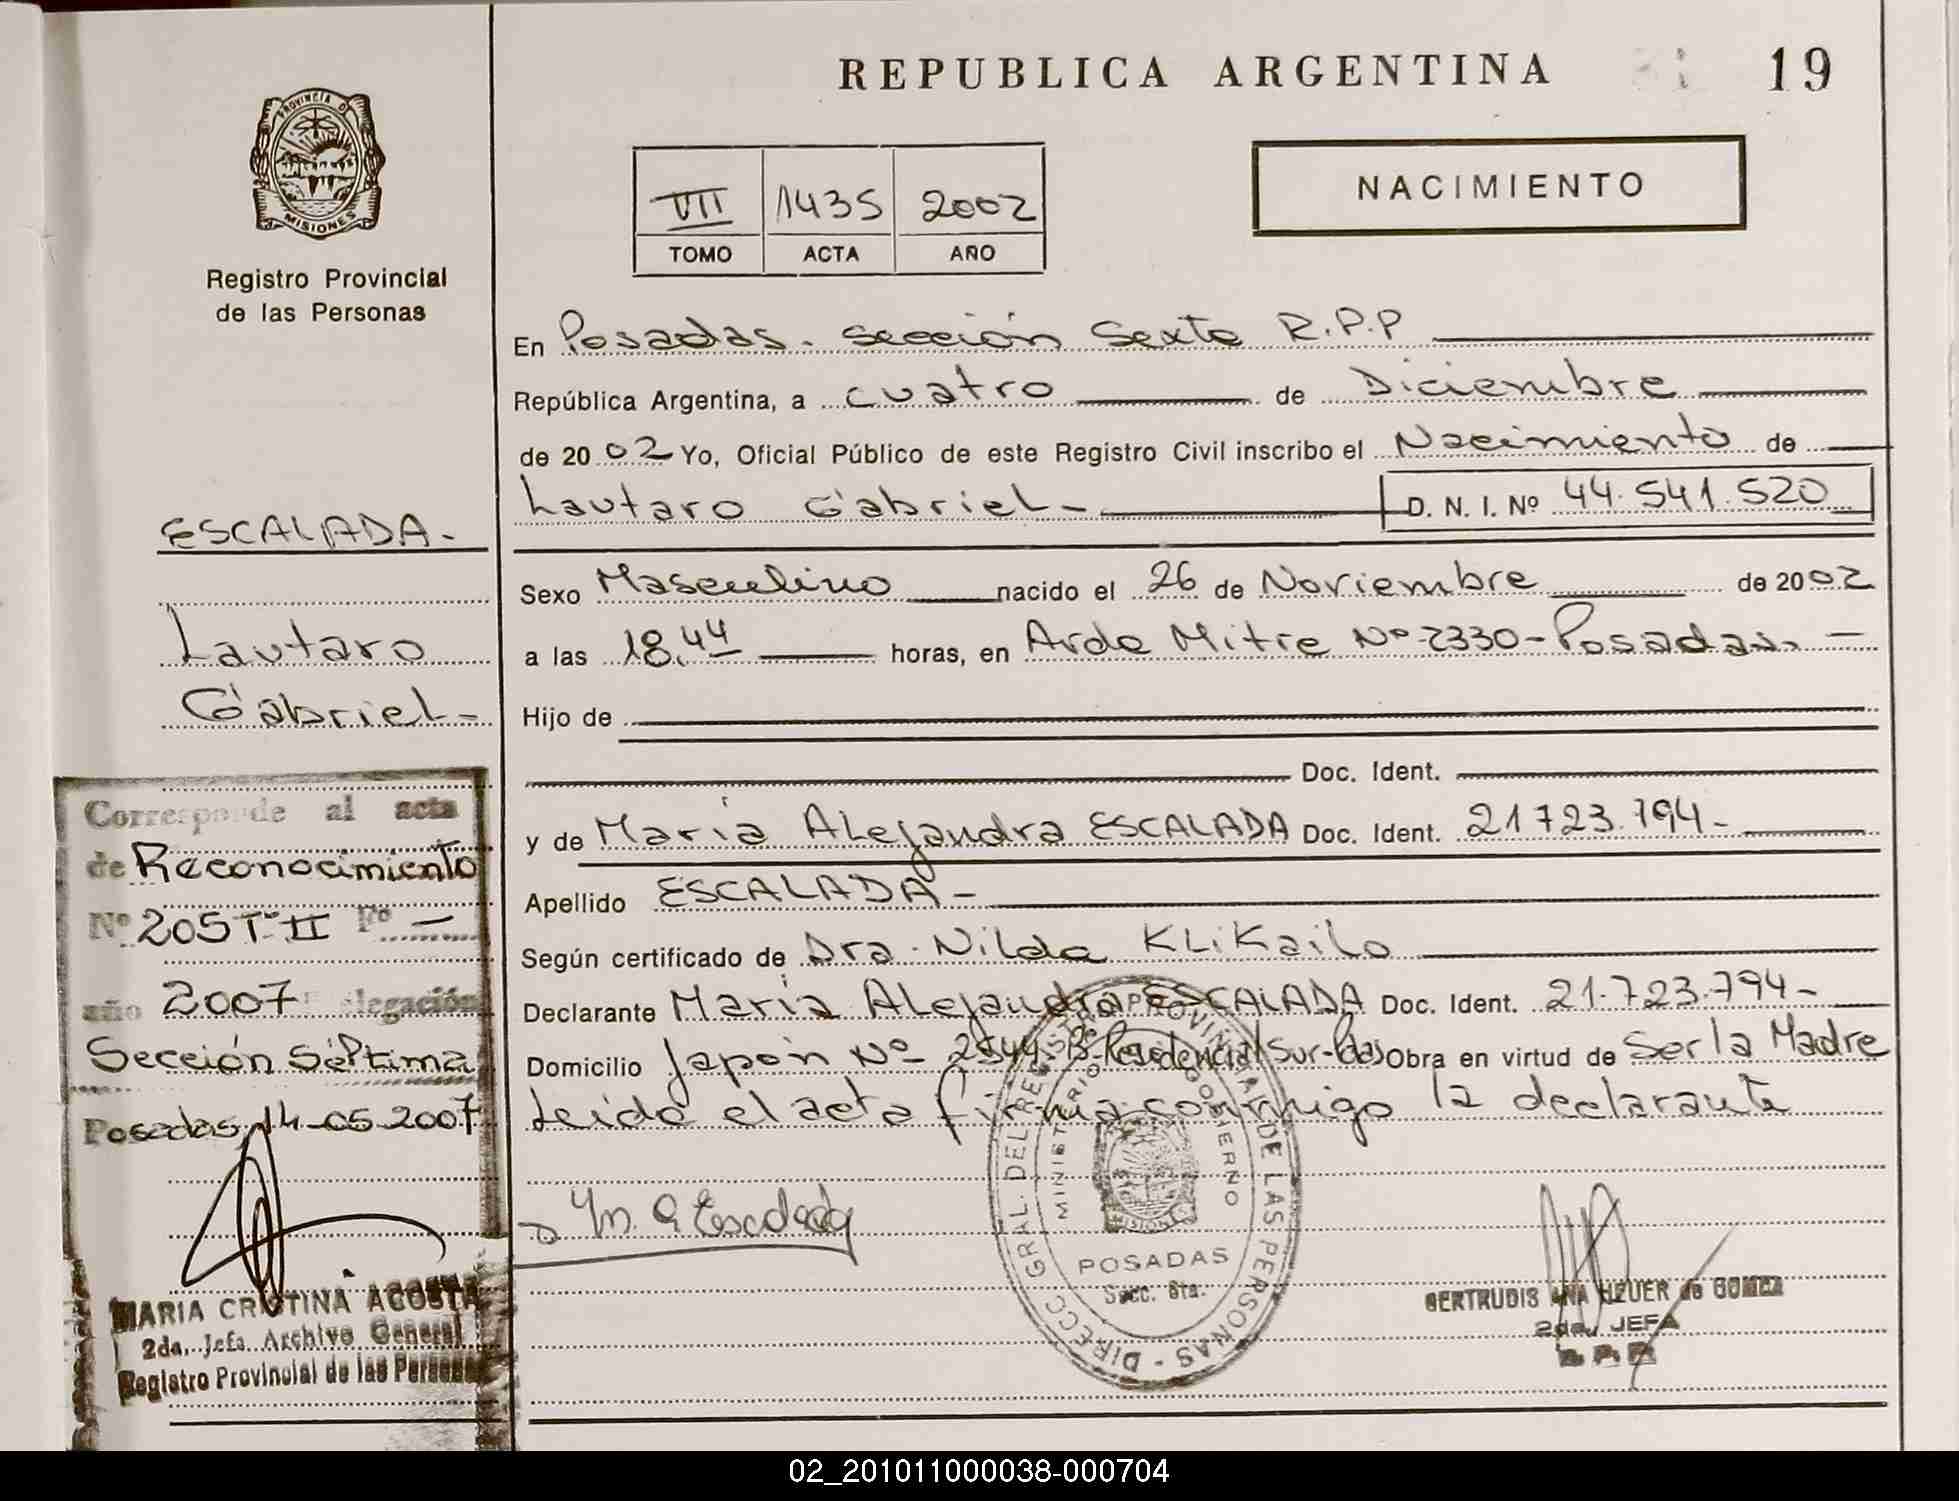 REPUBLICA ARGENTINA
19
PROVINCIA DE MISIONES
Registro Provincial
de las Personas
VII 1435 2002
TOMO ACTA AÑO
NACIMIENTO
En Posadas. Sección Sexta R.P.P
República Argentina, a cuatro de Diciembre
de 2002 Yo, Oficial Público de este Registro Civil inscribo el Nacimiento de
Lautaro Gabriel- D. N. I. Nº 44.541.520
ESCALADA-
Lautaro
Gabriel-
Sexo Masculino nacido el 26 de Noviembre de 2002
a las 18,44 horas, en Avda Mitre Nº 2330-Posadas.-
Hijo de
Doc. Ident.
y de María Alejandra ESCALADA Doc. Ident. 21723.794-
Apellido ESCALADA-
Según certificado de Dra. Nilda KLiKailo
Declarante María Alejandra ESCALADA Doc. Ident. 21.723.794-
Domicilio Japón Nº 2544-B-Residencial Sur-Pdas Obra en virtud de Ser la Madre
Leida el acta firma conmigo la declarante
Corresponde al acta
de Reconocimiento
Nº 205 T-II Fº -
año 2007 Delegación
Sección Séptima
Posadas, 14-05-2007
MARIA CRISTINA ACOSTA
2da. Jefa Archivo General
Registro Provincial de las Personas
M. A. Escalada
DIRECC. GRAL. DEL REGISTRO PROVINCIAL DE LAS PERSONAS
MINISTERIO DE GOBIERNO
MISIONES
POSADAS
Secc. 6ta.
GERTRUDIS ANA HEUER de GOMEZ
2da. JEFA
R.P.P.
02_201011000038-000704